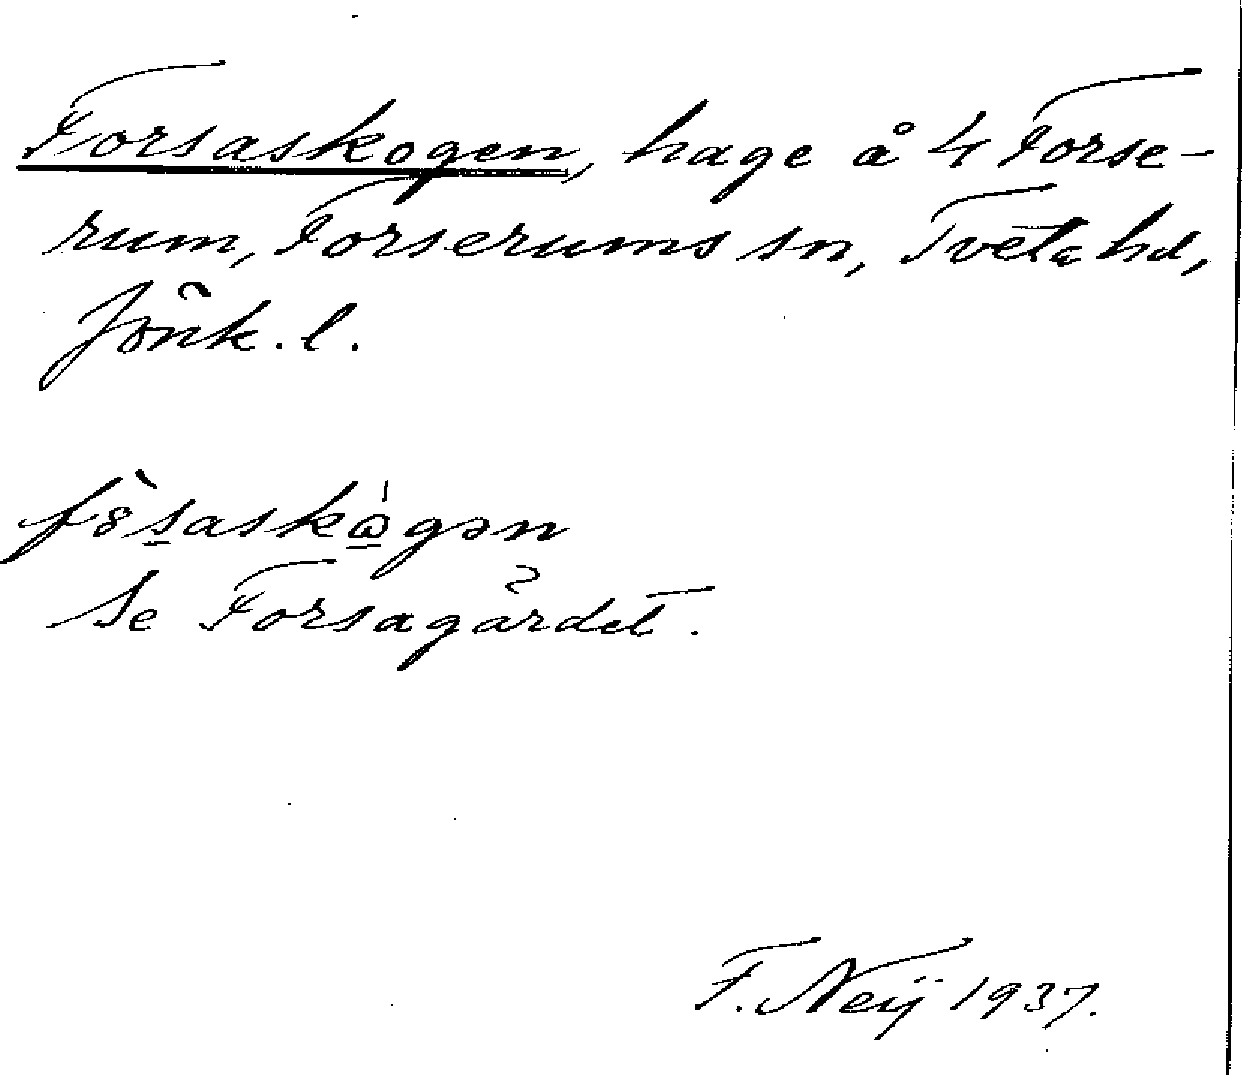 Forsaskogen, hage å 4 Forse-
rum, Forserums sn, Tveta hd,
Jönk. l.
Se Forsagårdet.
F. Neij 1937.